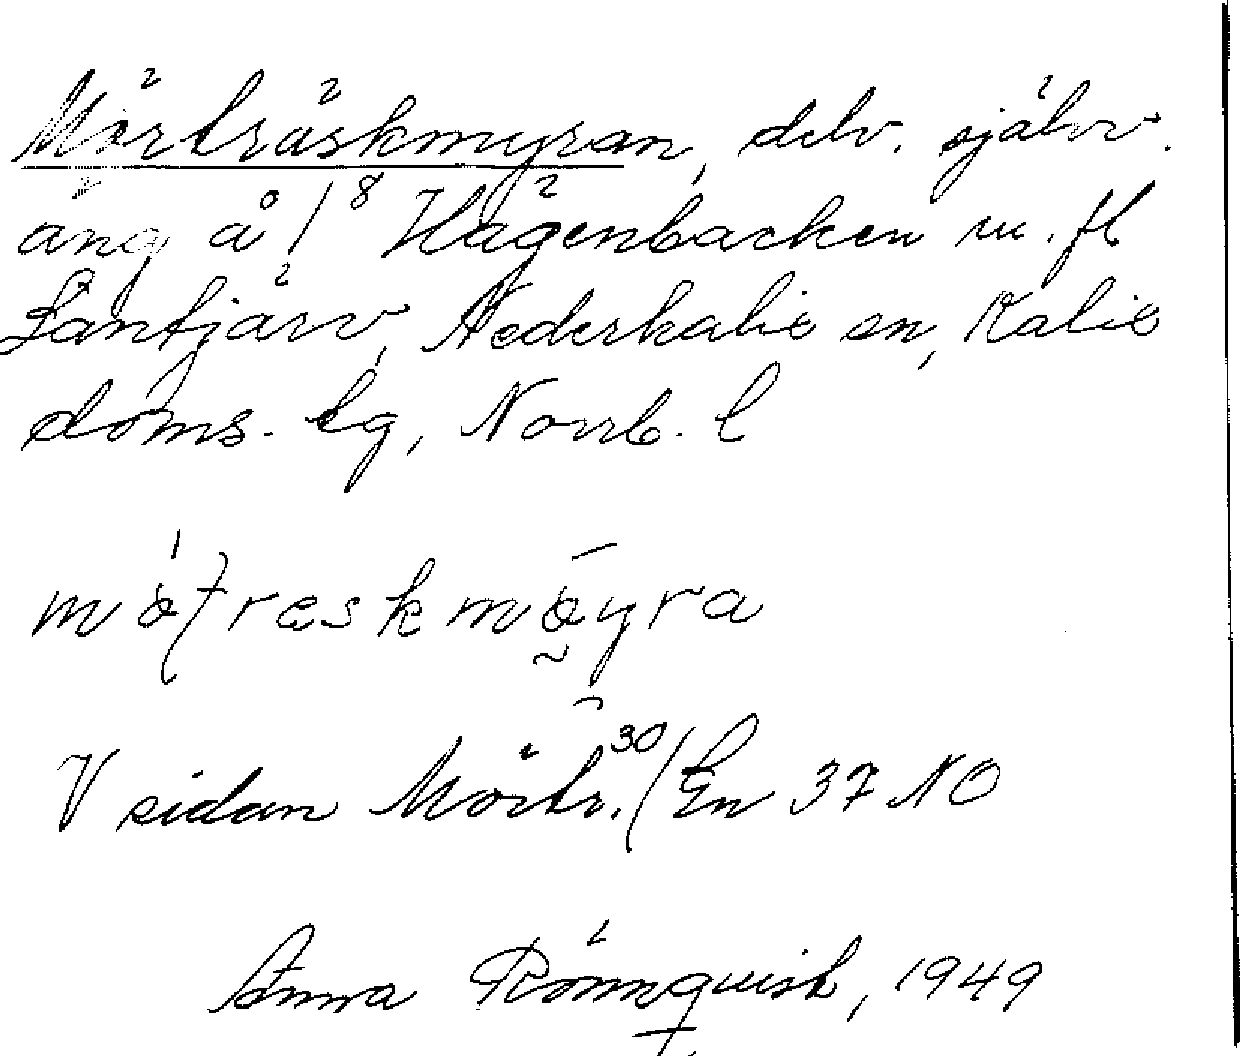 Mörträskmyran, delv. självv.
äng å 1⁸ Hägenbäcken m. fl
Säntjärv, Nederkalix sn, Kalix
doms. tg, Norrb. l
V sidan Mörtr.³⁰/ En 37 NO
Anna Rönnquist, 1949